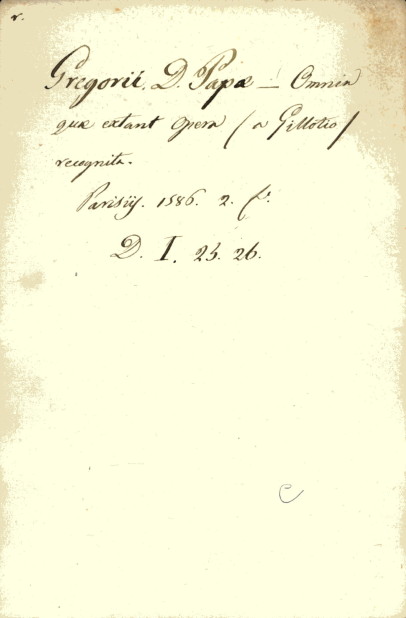 r.
Gregorii. D. Papæ — Omnia
quæ extant opera (a Gillotio)
recognita.
Parisiis. 1586. 2. f.º
D. I. 25. 26.
C